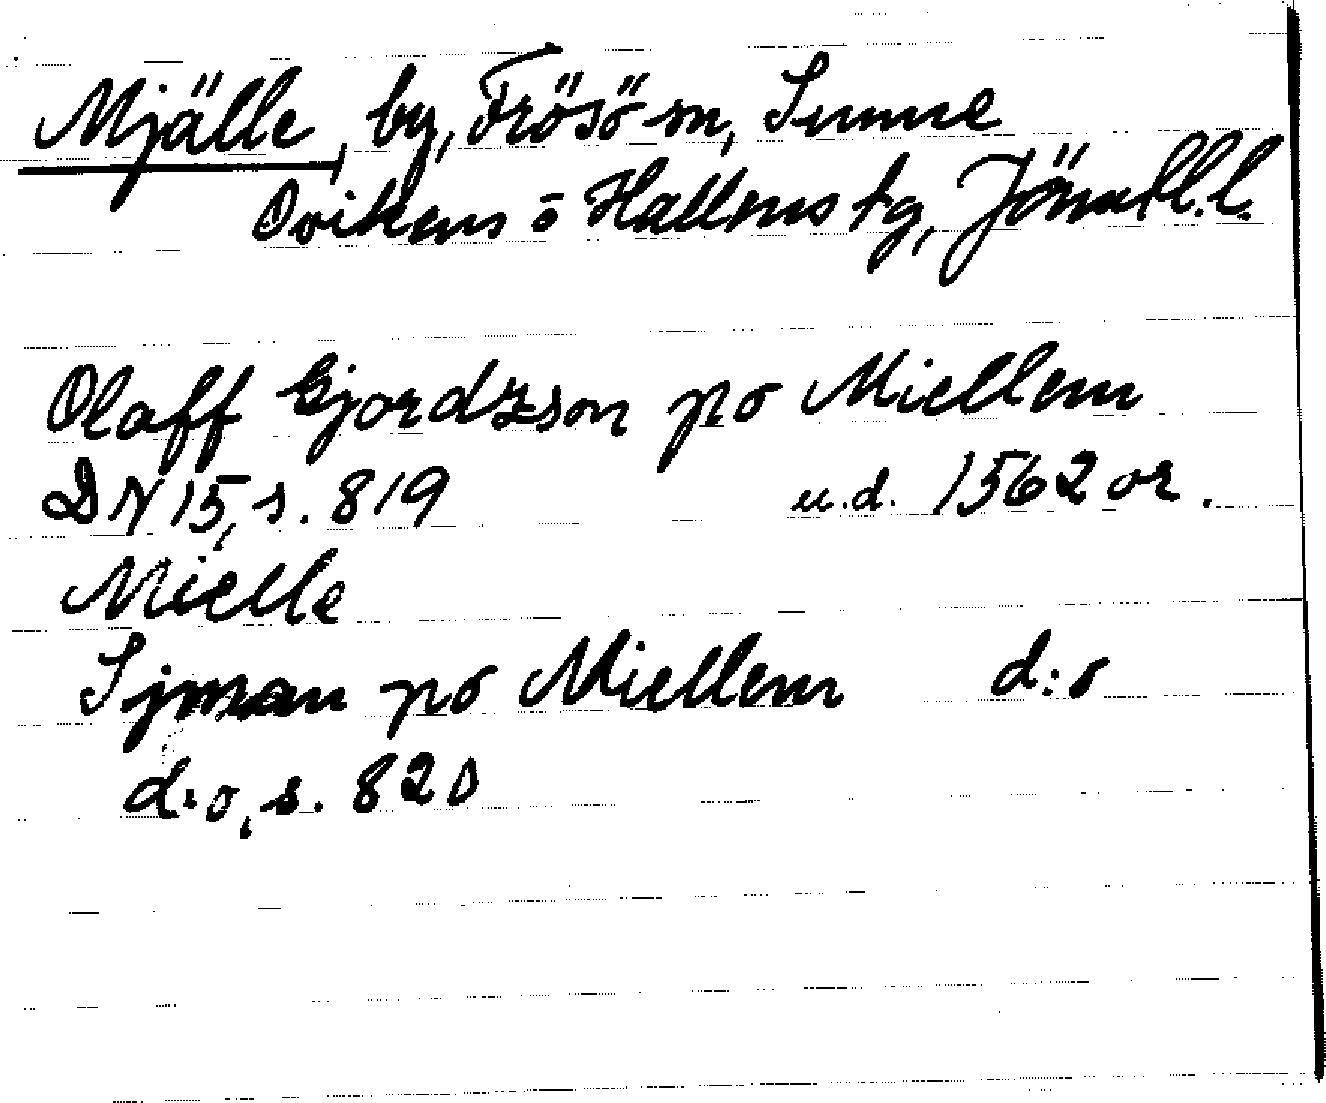 Mjälle, by, Frösö sn, Sunne
Ovikens o Hallens tg, Jämtl.l.
Olaff Gjordzson po Miellem
DN 15, s. 819 u.d. 1562 or.
Mielle
Sjman po Miellem d:o
d:o, s. 820